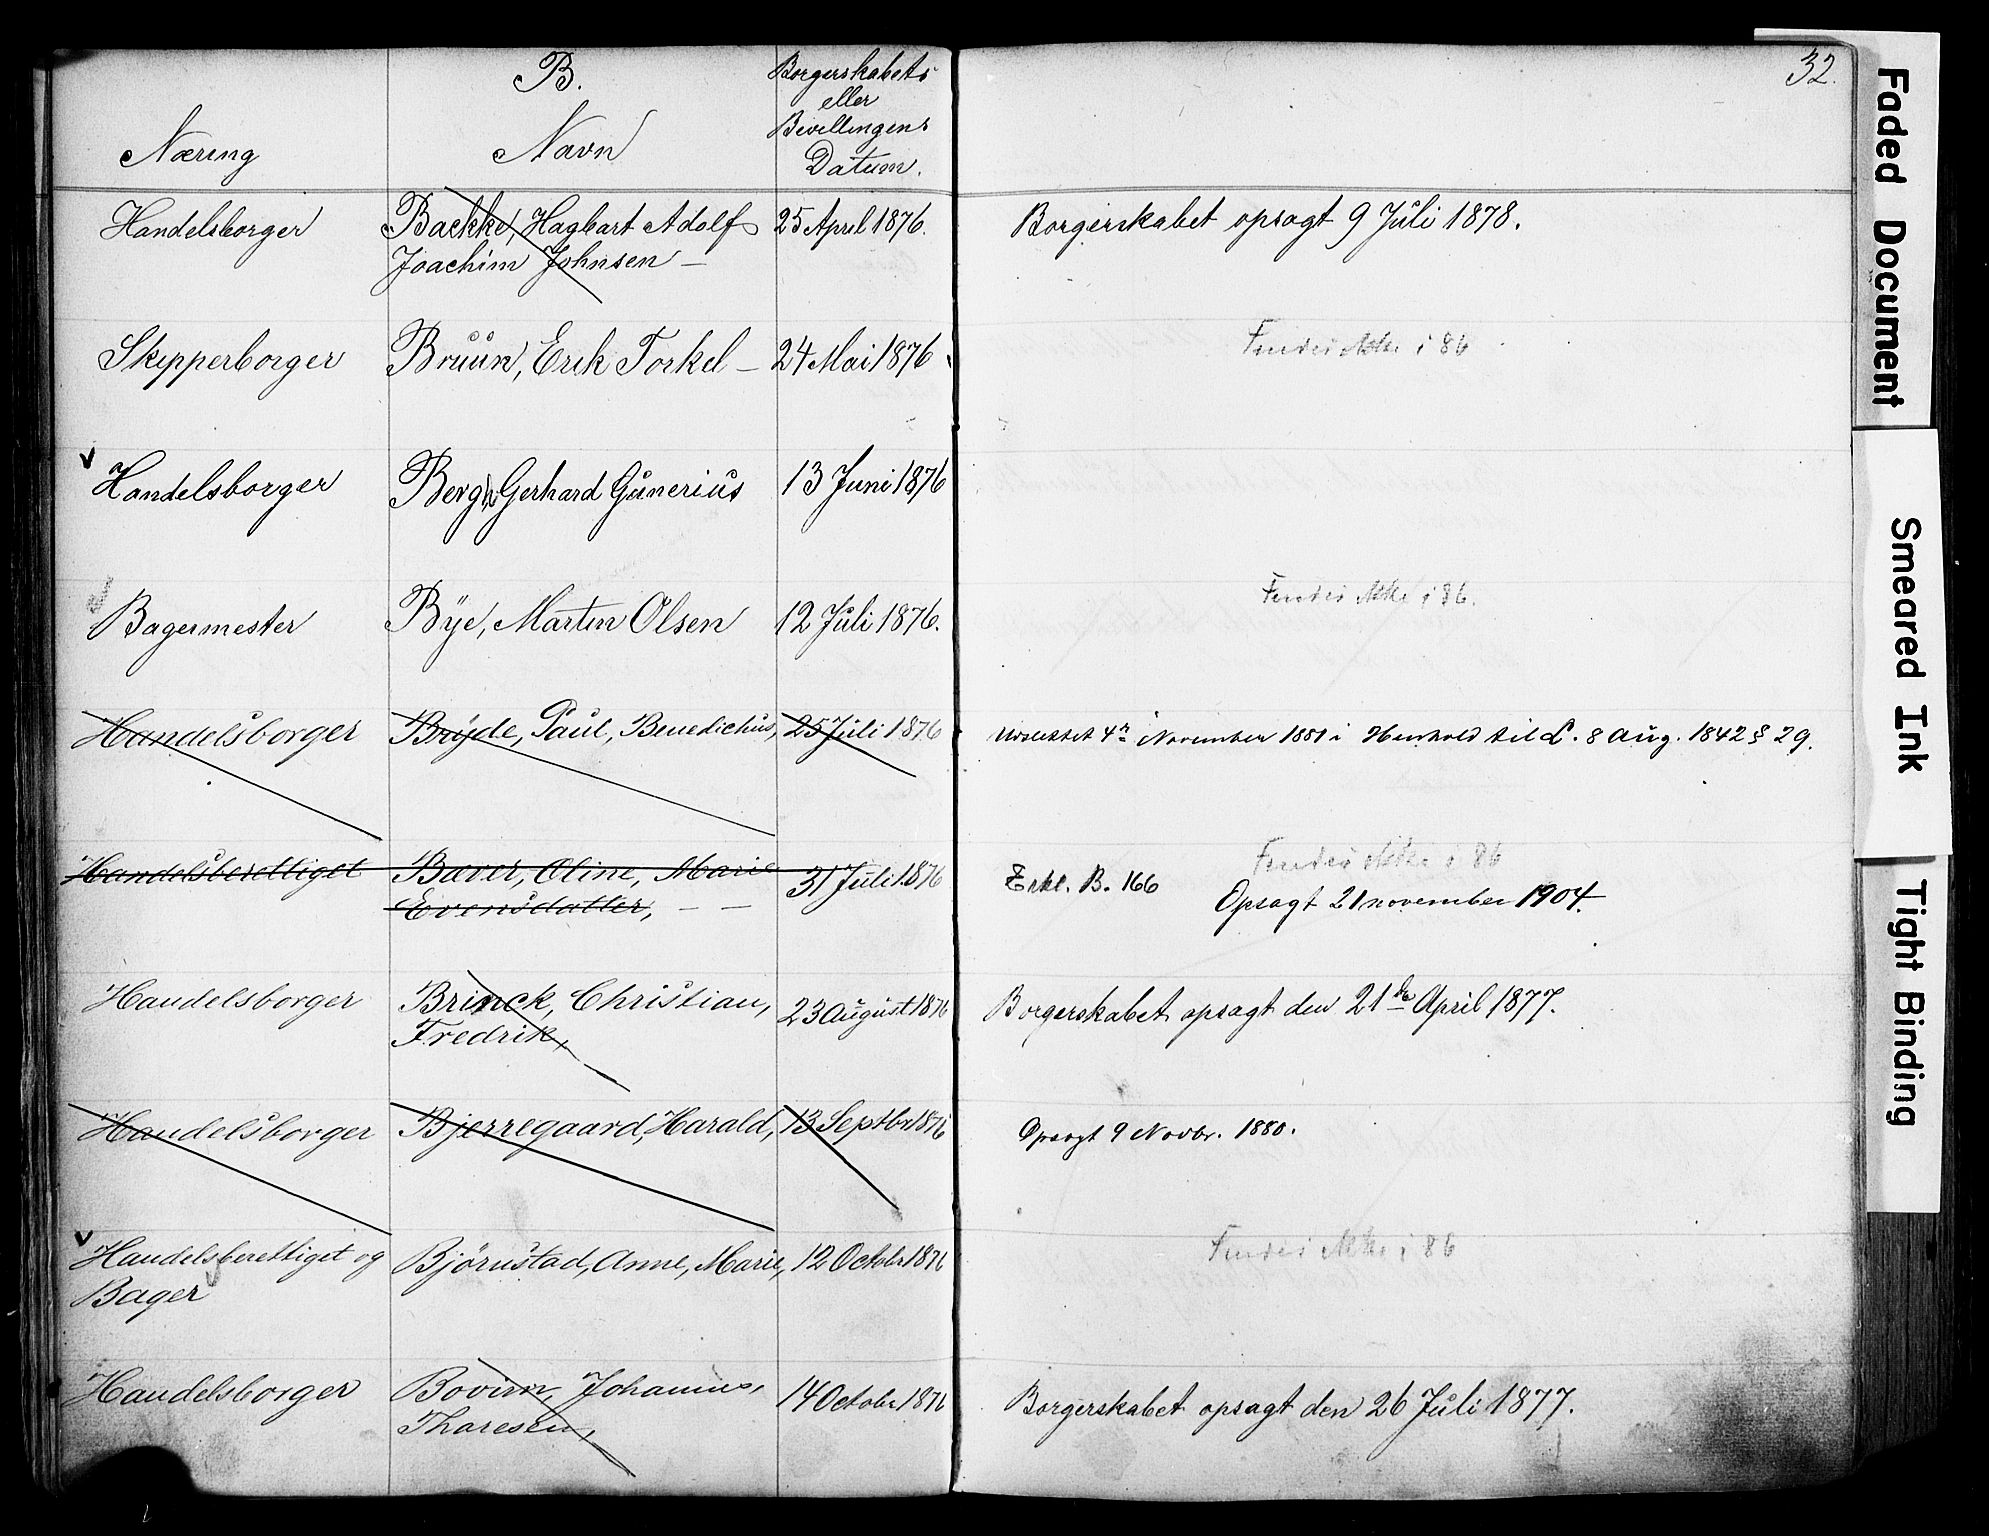 B.
32.
Næring
Navn
Borgerskabets
eller
Bevillingens
Datum.
Handelsborger
Backke, Hagbart Adolf
Joachim Johnsen —
25 April 1876.
Borgerskabet opsagt 9 Juli 1878.
Skipperborger
Bruun, Erik Torkel —
24 Mai 1876
Findes ikke i 86
Handelsborger
Bergh, Gerhard Gunerius
13 Juni 1876
Bagermester
Bye, Martin Olsen
12 Juli 1876.
Findes ikke i 86.
Handelsborger
Bryde, Paul, Benedichus,
25 Juli 1876
Udslettet 4de November 1881 i Henhold til L. 8 Aug. 1842 § 29.
Handelsberettiget
Bæver, Oline, Marie
Evensdatter, — —
31 Juli 1876
Findes ikke i 86
Erkl. B. 166
Opsagt 21 november 1904.
Handelsborger
Brinck, Christian,
Fredrik,
23 August 1876
Borgerskabet opsagt den 21de April 1877.
Handelsborger
Bjerregaard, Harald,
13 Septbr 1876
Opsagt 9 Novbr. 1880.
Handelsberettiget og
Bager
Bjørnstad, Anne, Marie,
12 Octobr 1876
Findes ikke i 86
Handelsborger
Bovim, Johannes,
Tharesen,
14 Octobr 1876
Borgerskabet opsagt den 26 Juli 1877.
Faded Document
Smeared Ink
Tight Binding